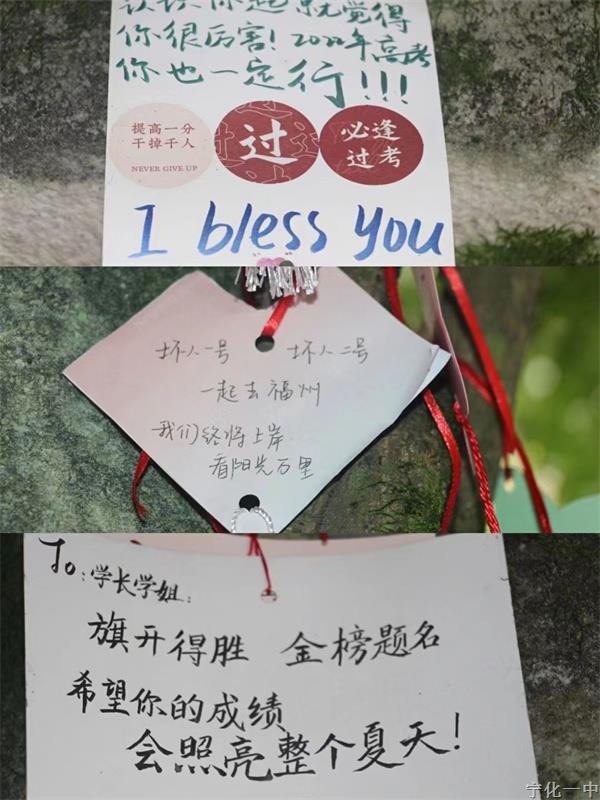 认识你起就觉得
你很厉害！2022年高考
你也一定行！！！
提高一分
干掉千人
NEVER GIVE UP
过
必逢
过考
I bless you
坏人一号 坏人二号
一起去福州
我们终将上岸
看阳光万里
To：学长学姐：
旗开得胜 金榜题名
希望你的成绩
会照亮整个夏天！
宁化一中